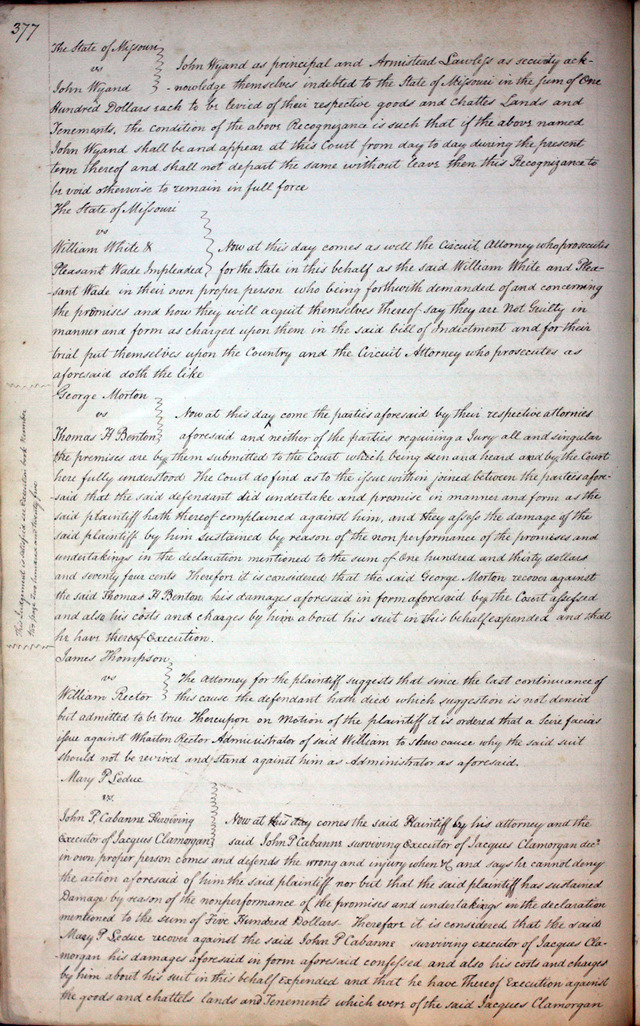 377
The State of Missouri
vs
John Wyand
John Wyand as principal and Armistead Lawless as security ack-
-nowledge themselves indebted to the State of Missouri in the sum of One
Hundred Dollars each to be levied of their respective goods and Chattes Lands and
Tenements, the condition of the above Recognizance is such that if the above named
John Wyand shall be and appear at this Court from day to day during the present
term thereof and shall not depart the same without leave then this Recognizance to
be void otherwise to remain in full force
The State of Missouri
vs
William White &
Pleasant Wade Impleaded
Now at this day comes as well the Circuit Attorney who prosecutes
for the State in this behalf as the said William White and Plea-
sant Wade in their own proper person who being forthwith demanded of and concerning
the promises and how they will acquit themselves thereof say they are Not Guilty in
manner and form as charged upon them in the said bill of Indictment and for their
trial put themselves upon the Country and the Circuit Attorney who prosecutes as
aforesaid doth the like
George Morton
vs
Thomas H Benton
Now at this day come the parties aforesaid by their respective attornies
aforesaid and neither of the parties requiring a Jury all and singular
the premises are by them submitted to the Court which being seen and heard and by the Court
here fully understood The Court do find as to the issue within joined between the parties afore-
said that the said defendant did undertake and promise in manner and form as the
said plaintiff hath thereof complained against him, and they assess the damage of the
said plaintiff by him sustained by reason of the non performance of the promises and
undertakings in the declaration mentioned to the sum of One hundred and thirty dollars
and seventy four cents Therefore it is considered that the said George Morton recover against
the said Thomas H. Benton his damages aforesaid in form aforesaid by the Court assessed
and also his costs and charges by him about his suit in this behalf expended and that
he have thereof Execution.
This Judgement is satisfied see Execution book Number
two page two hundred and twenty five
James Thompson
vs
William Rector
The Attorney for the plaintiff suggests that since the last continuance of
this cause the defendant hath died which suggestion is not denied
but admitted to be true Thereupon on Motion of the plaintiff it is ordered that a Scire facias
issue against Wharton Rector Administrator of said William to shew cause why the said suit
should not be revived and stand against him as Administrator as aforesaid.
Mary P. Leduc
vs.
John P. Cabanne Surviving
Executor of Jacques Clamorgan
Now at this day comes the said Plaintiff by his attorney and the
said John P Cabanne surviving Executor of Jacques Clamorgan decd
in own proper person comes and defends the wrong and injury when &c and says he cannot deny
the action aforesaid of him the said plaintiff nor but that the said plaintiff has sustained
Damage by reason of the nonperformance of the promises and undertakings in the declaration
mentioned to the sum of Five Hundred Dollars. Therefore it is considered that the said
Mary P. Leduc recover against the said John P Cabanne surviving executor of Jacques Cla-
morgan his damages aforesaid in form aforesaid confessed and also his costs and charges
by him about his suit in this behalf Expended and that he have Thereof Execution against
the goods and chattels lands and Tenements which were of the said Jacques Clamorgan